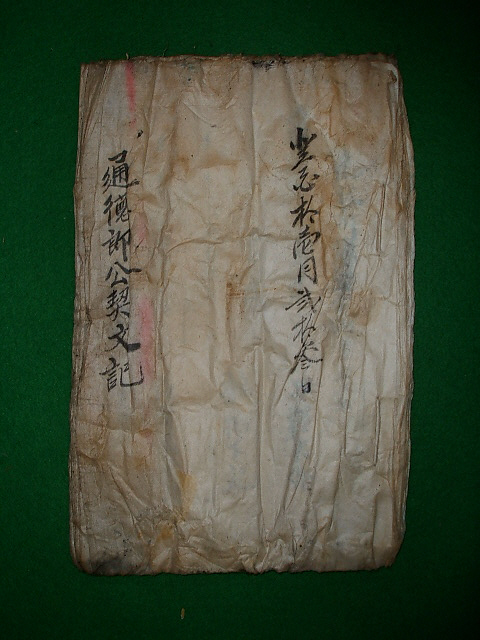 拾壱月弐拾叁日
通德郎公契文記